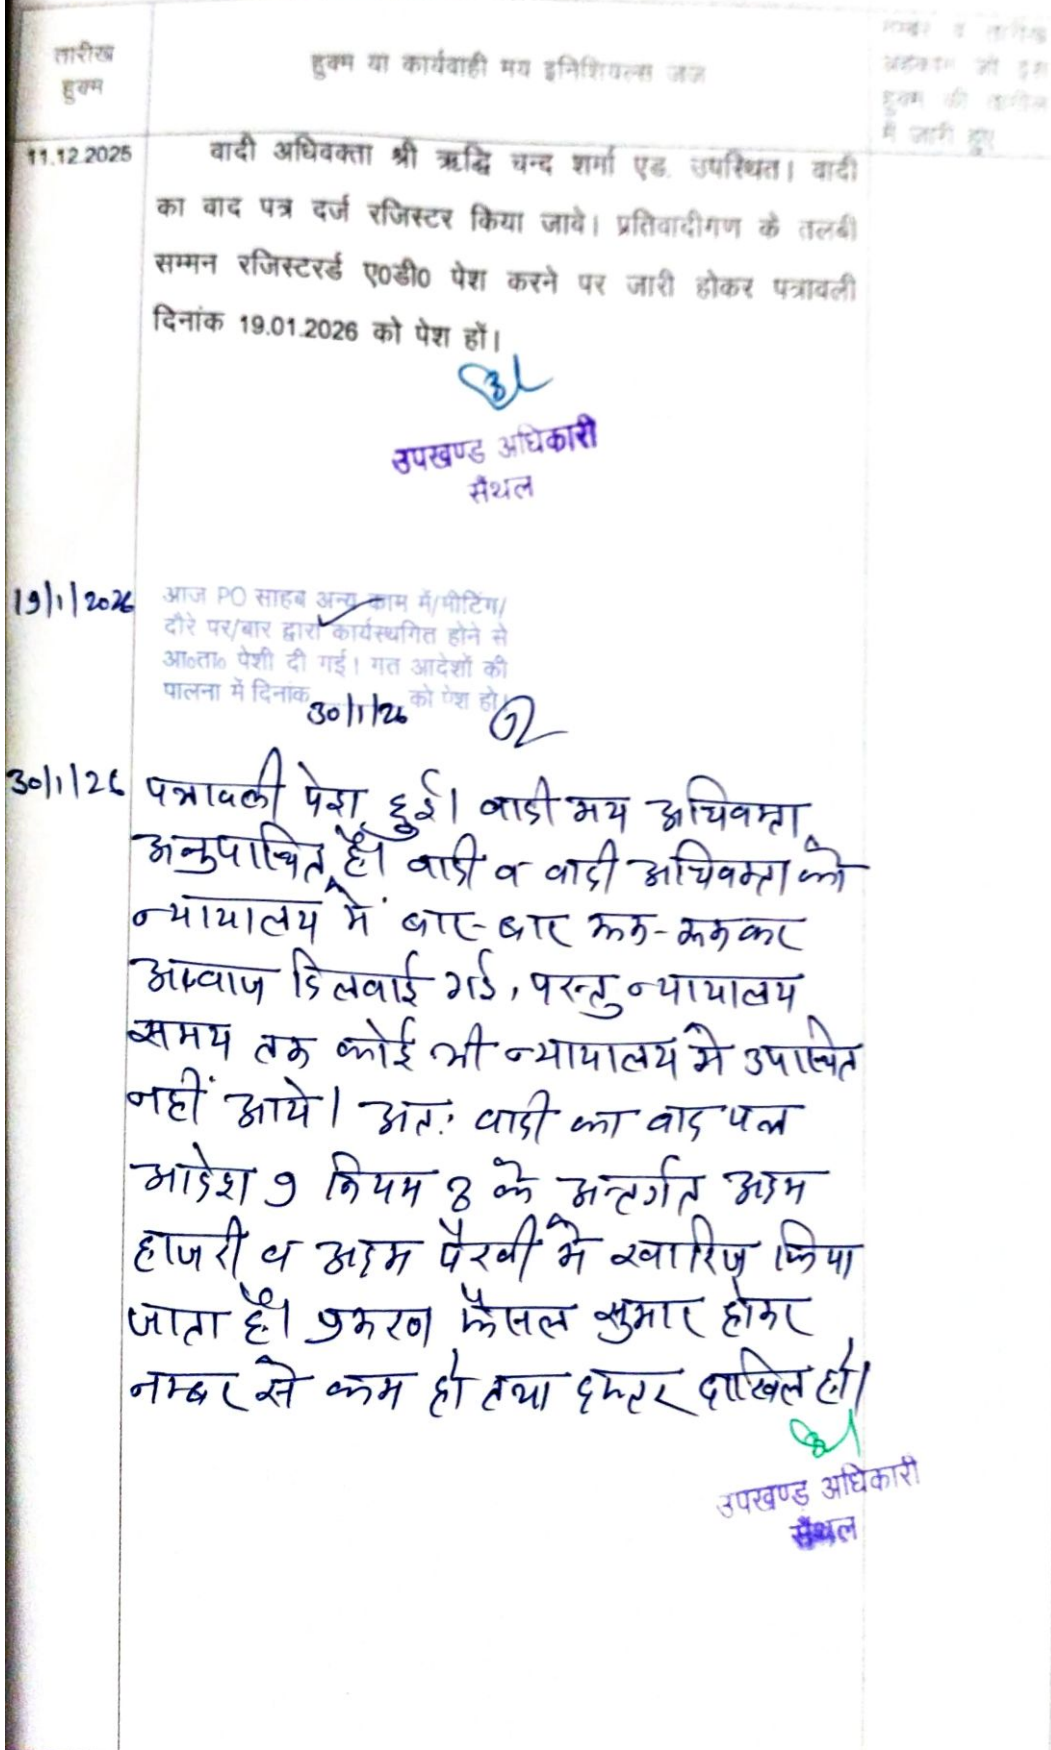 तारीख
हुक्म
हुक्म या कार्यवाही मय इनिशियल्स जज
नम्बर व तारीख
अहकाम जो इस
हुक्म की तामिल
में जारी हुए
11.12.2025
वादी अधिवक्ता श्री ऋद्धि चन्द शर्मा एड. उपस्थित। वादी
का वाद पत्र दर्ज रजिस्टर किया जावे। प्रतिवादीगण के तलबी
सम्मन रजिस्टरर्ड ए0डी0 पेश करने पर जारी होकर पत्रावली
दिनांक 19.01.2026 को पेश हों।
उपखण्ड अधिकारी
सैंथल
19/1/2026
आज PO साहब अन्य काम में/मीटिंग/
दौरे पर/बार द्वारा कार्यस्थगित होने से
आ०ता० पेशी दी गई। गत आदेशों की
पालना में दिनांक 30/1/26 को पेश हो।
30/1/26 पत्रावली पेश हुई। वादी मय अधिवक्ता
अनुपस्थित है। वादी व वादी अधिवक्ता को
न्यायालय में बार-बार रूक-रूककर
आवाज दिलवाई गई, परन्तु न्यायालय
समय तक कोई भी न्यायालय मे उपस्थित
नहीं आये। अतः वादी का वाद पत्र
आदेश 9 नियम 8 के अन्तर्गत अदम
हाजरी व अदम पैरवी मे खारिज किया
जाता है। प्रकरण फैसल शुमार होकर
नम्बर से कम हो तथा दफ्तर दाखिल हो।
उपखण्ड अधिकारी
सैंथल